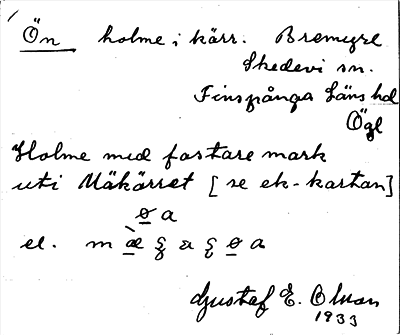 Ön holme i kärr. Bremyre
Skedevi sn.
Finspånga Läns hd
Ögl
Holme med fastare mark
uti Mäkärret [se ek-kartan]
ɵ a
el. m
Gustaf E. Olson
1933